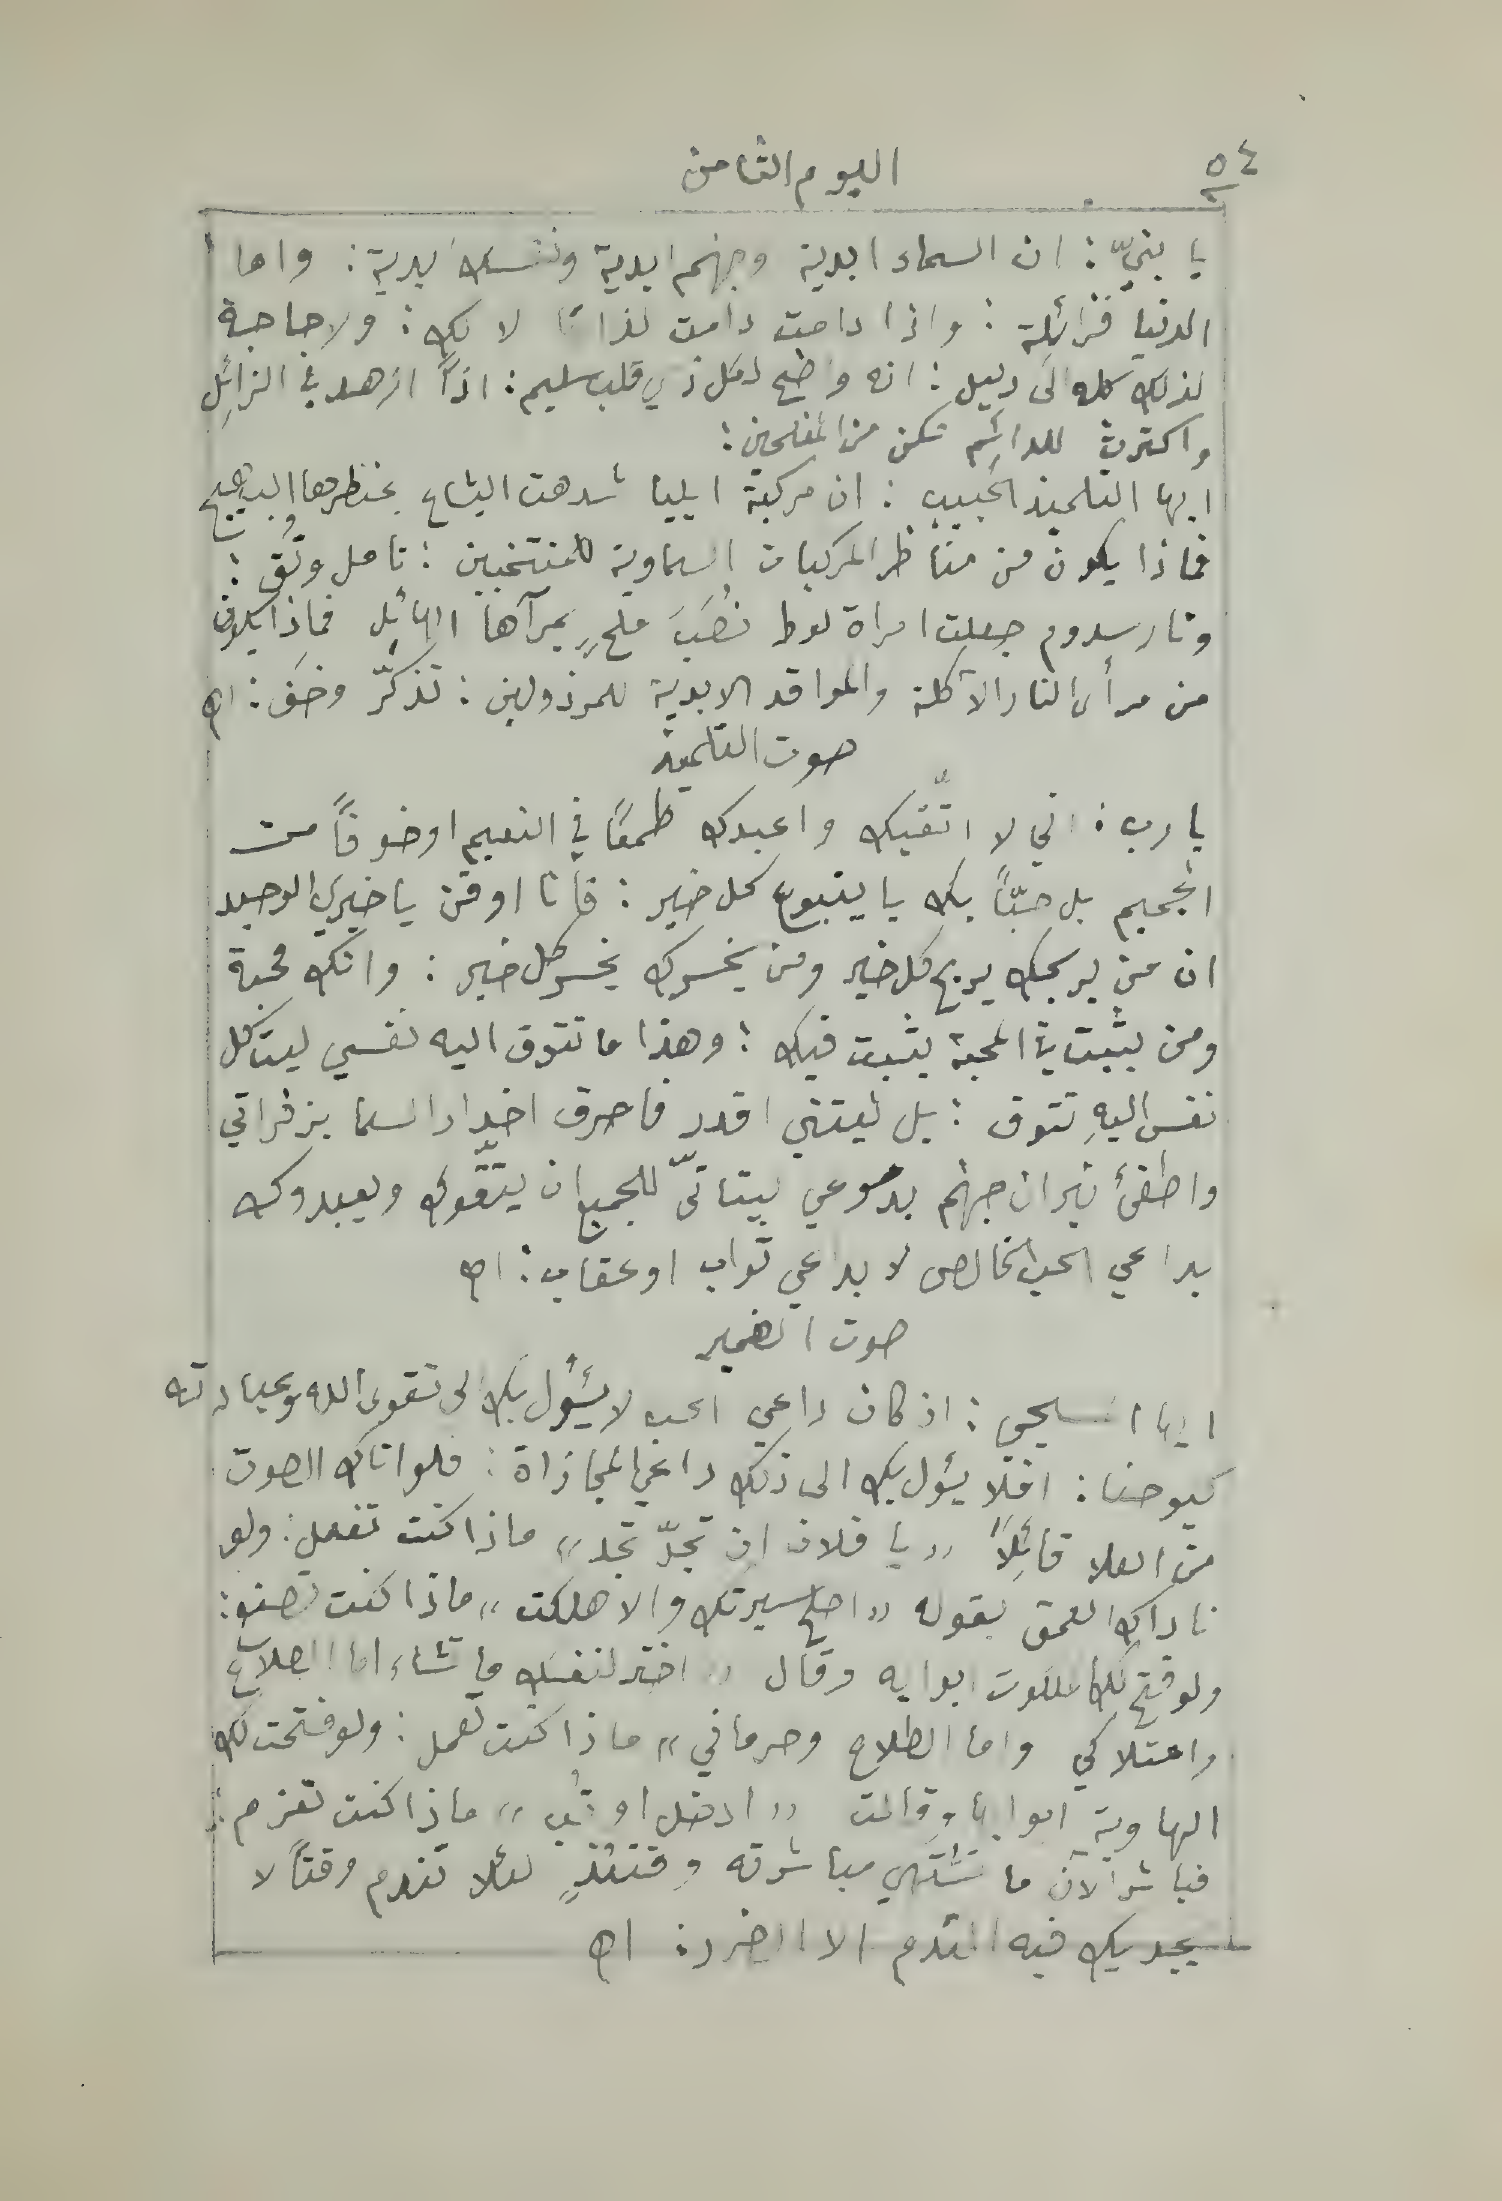 ٥٤
اليوم الثامن
يا بنيّ : ان السماء ابدية وجهنم ابدية ونفسك ابدية : واما
الدنيا فزائلة : واذا دامت دامت لذاتها لا لك : ولا حاجة
لذلك كله الى دليل : انه واضح لكل ذي قلب سليم : اذاً ازهد في الزائِل
واكترث للدائِم تكن من المفلحين :
ايها التلميذ الحبيب : ان مركبة ايليا شدهت اليشاع بمنظرها البهيج
فماذا يكون من مناظر المركبات السماوية للمنتخبين : تامل وتُق :
ونار سدوم جعلت امراة لوط نُصَبَ ملحٍ بمرآها الهائِل فماذا يكون
من مرأى النار الآكلة والمواقد الابدية للمرذولين : تذكّر وخَف : اه
صوت التلميذ
يا رب : اني لا اتّقيك واعبدك طمعًا في النعيم او خوفًا من
الجحيم بل حبًّا بك يا ينبوع كل خير : فأنا اوقن يا خيري الوحيد
ان من يربحك يربح كل خير ومن يخسرك يخسر كل خير : وانك محبة
ومن يثبت في المحبة يثبت فيك : وهذا ما تتوق اليه نفسي ليت كل
نفس اليهِ تتوق : بل ليتني اقدر فاحرق اخدار السما بزفراتي
واطفئ نيران جهنم بدموعي ليتاتّى للجميع ان يتّقوك ويعبدوك
بداعي الحب الخالص لا بداعي ثواب او عقاب : اه
صوت الضمير
ايها المسيحي : اذ كان داعي الحب لا يئول بك الى تقوى الله وعبادته
كيوحنا : افلا يئول بك الى ذلك داعي المجازاة : فلو اتاك الصوت
من العلا قائِلاً « يا فلان ان تجدّ تجد » ماذا كنت تفعل : ولو
ناداك العمق بقوله « اصلح سيرتك والا هلكت » ماذا كنت تصنع :
ولو فتح لك الملكوت ابوابه وقال « اختر لنفسك ما تشاء اما الصلاح
وامتلاكي واما الطلاح وحرماني » ماذا كنت تعمل : ولو فتحت لك
الهاوية ابوابها وقالت « ادخل او تُب » ماذا كنت تعزم :
فباشر الآن ما تشتهي مباشرته وقتئذٍ لئلا تندم وقتًا لا
يجديك فيه الندم الا الضرر : اه